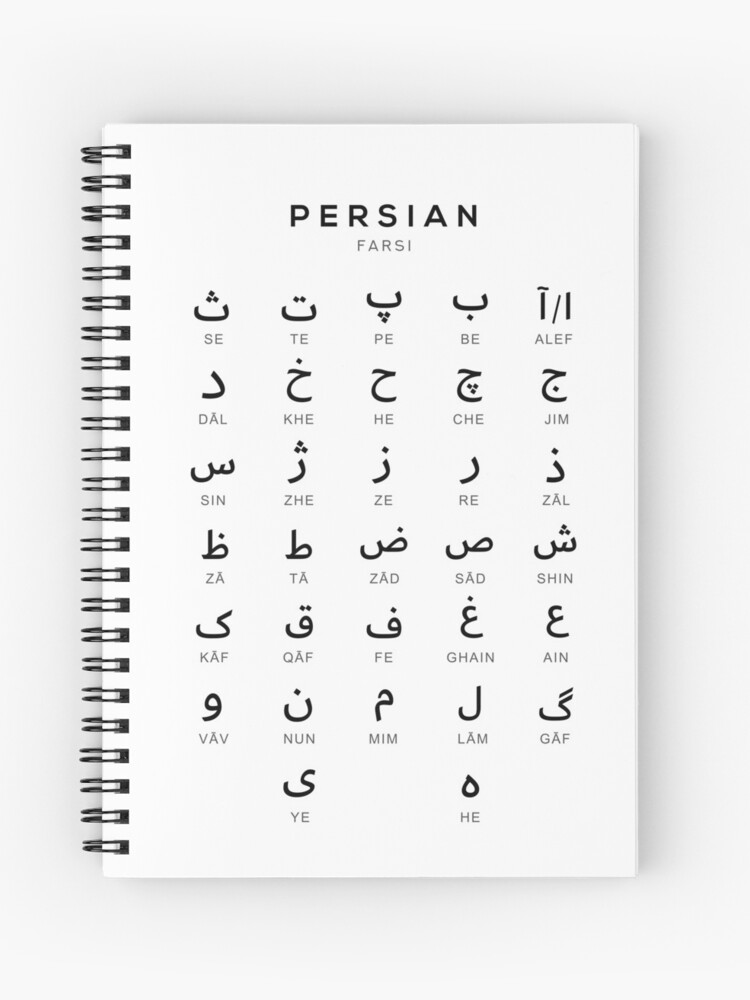 PERSIAN
FARSI
ا/آ ب پ ت ث
SE TE PE BE ALEF
ج چ ح خ د
DĀL KHE HE CHE JIM
ذ ر ز ژ س
SIN ZHE ZE RE ZĀL
ش ص ض ط ظ
ZĀ TĀ ZĀD SĀD SHIN
ع غ ف ق ک
KĀF QĀF FE GHAIN AIN
گ ل م ن و
VĀV NUN MIM LĀM GĀF
ه ی
YE HE